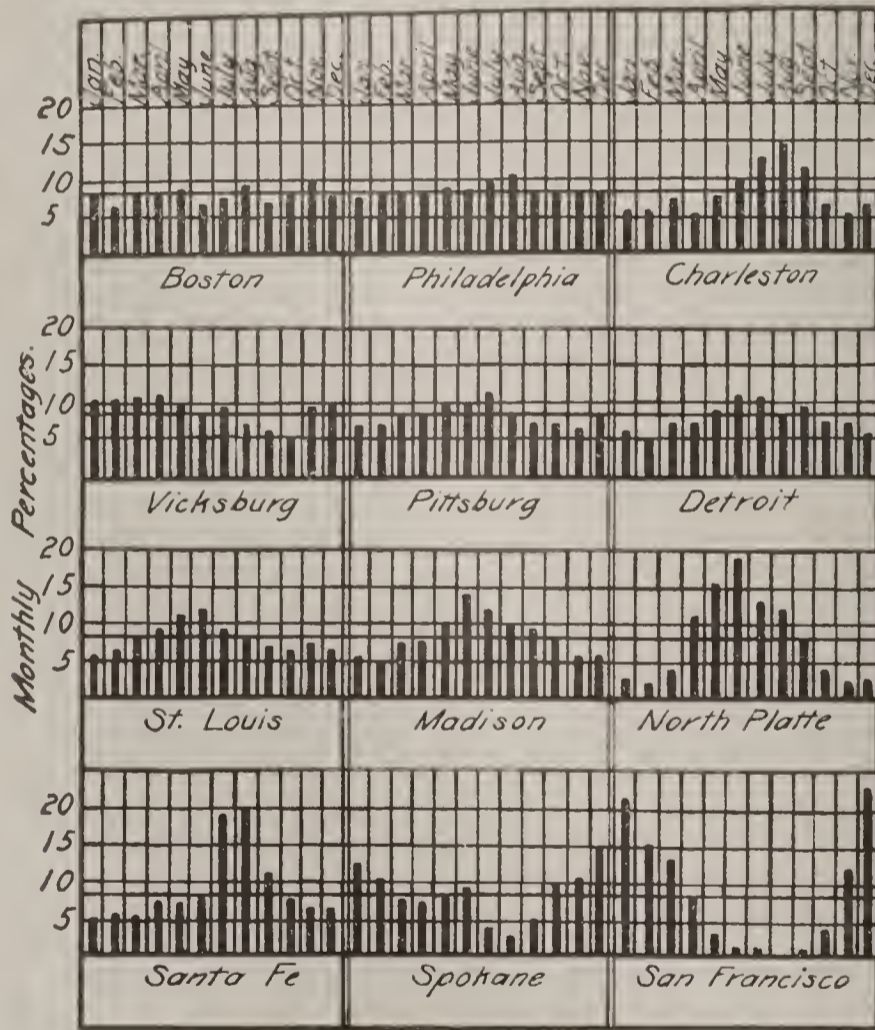 Jan. Feb. Mar. April May June July Aug. Sept. Oct. Nov. Dec. Jan. Feb. Mar. April May June July Aug. Sept. Oct. Nov. Dec. Jan. Feb. Mar. April May June July Aug. Sept. Oct. Nov. Dec.
20
15
10
5
Boston Philadelphia Charleston
20
15
10
5
Vicksburg Pittsburg Detroit
20
15
10
5
St. Louis Madison North Platte
20
15
10
5
Santa Fe Spokane San Francisco
Monthly Percentages.